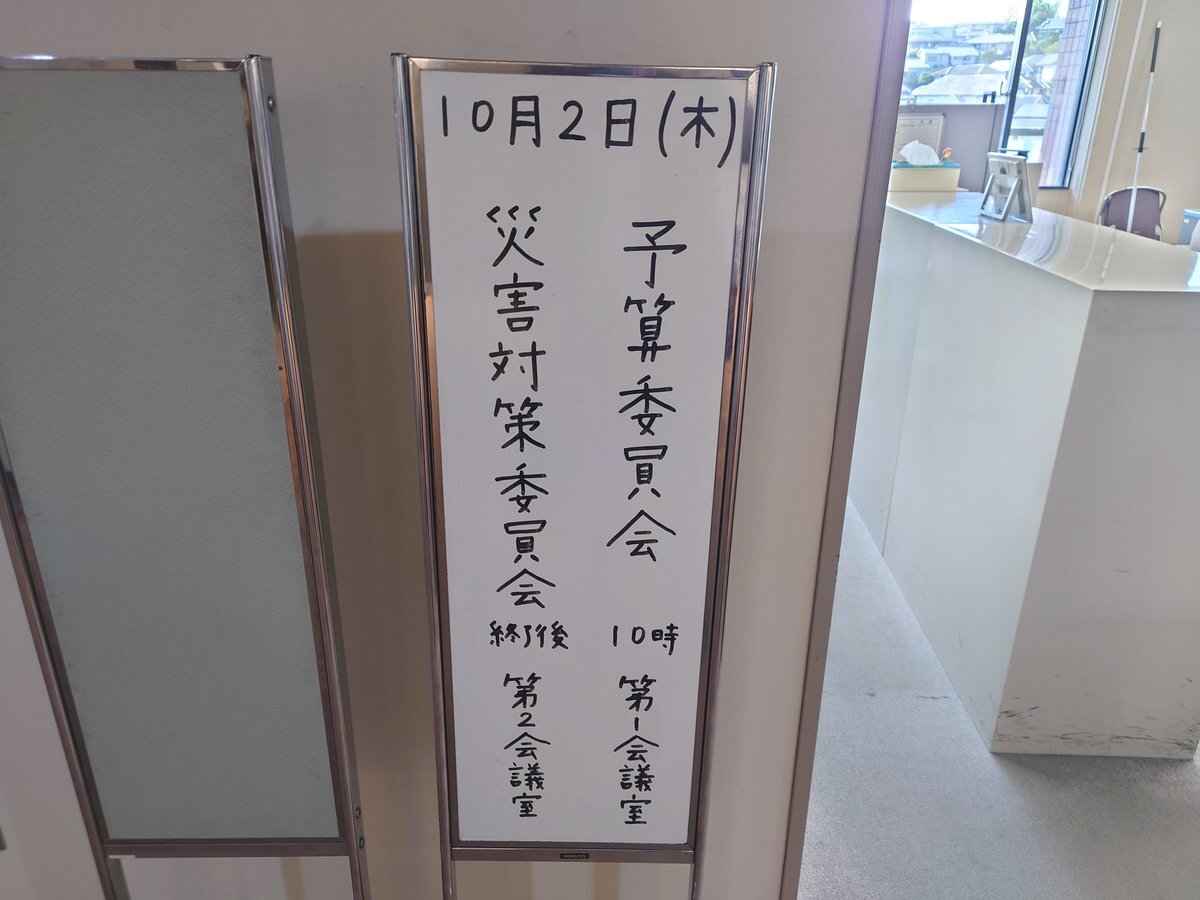 10月2日(木)
予算委員会 10時 第1会議室
災害対策委員会 終了後 第2会議室
KOKUYO